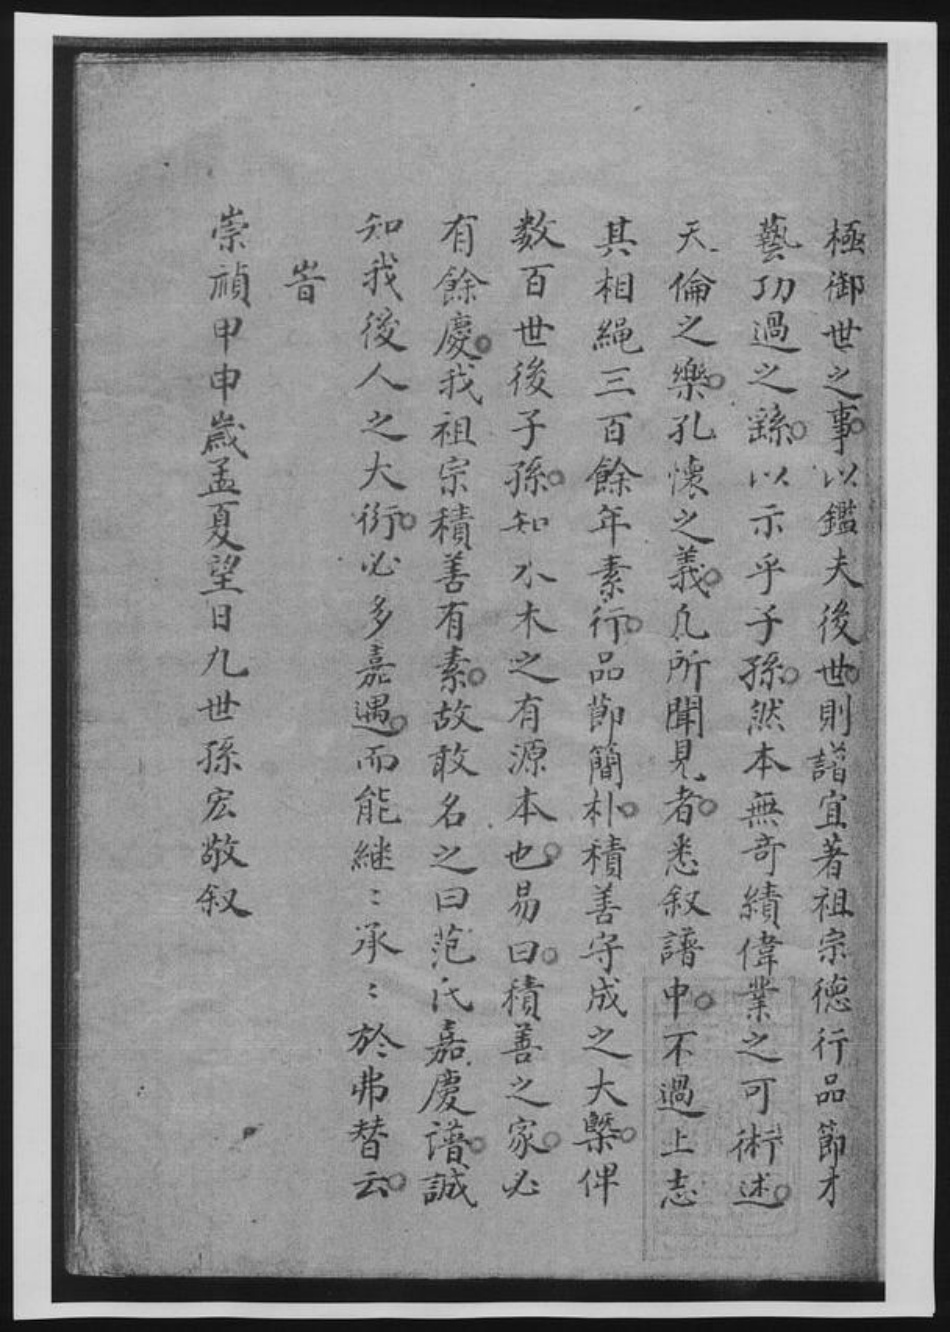 極御世之事以鑑夫後世則譜宜著祖宗德行品節才
藝功過之繇以示乎子孫然本無奇績偉業之可術述
天倫之樂孔懷之義凡所聞見者悉叙譜中不過上志
其相繩三百餘年素行品節簡朴積善守成之大槩俾
数百世後子孫知水木之有源本也易曰積善之家必
有餘慶我祖宗積善有素故敢名之曰范氏嘉慶譜誠
知我後人之大衍必多嘉遇而能継：承：於弗替云
旹
崇禎甲申歲孟夏望日九世孫宏敬叙